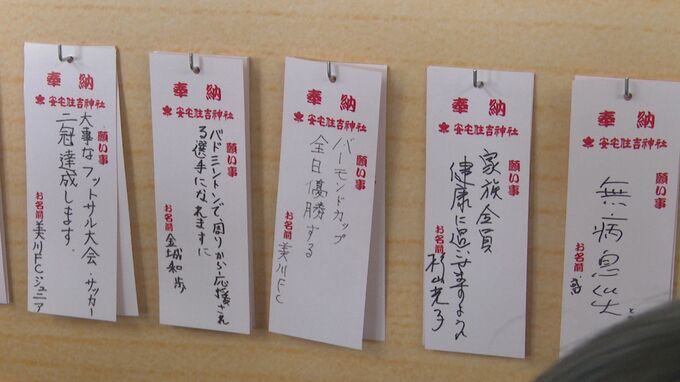 奉納
安宅住吉神社
願い事
大事なフットサル大会・サッカー
二冠達成します.
お名前 美川FCジュニア
奉納
安宅住吉神社
願い事
バドミントンで、周りから応援され
る選手になれますように
お名前 金城和歩
奉納
安宅住吉神社
願い事
バーモンドカップ
全日優勝する
お名前 美川FC
奉納
安宅住吉神社
願い事
家族全員
健康に過ごせますように
お名前 杉山光子
奉納
安宅住吉神社
願い事
無病息災
お名前